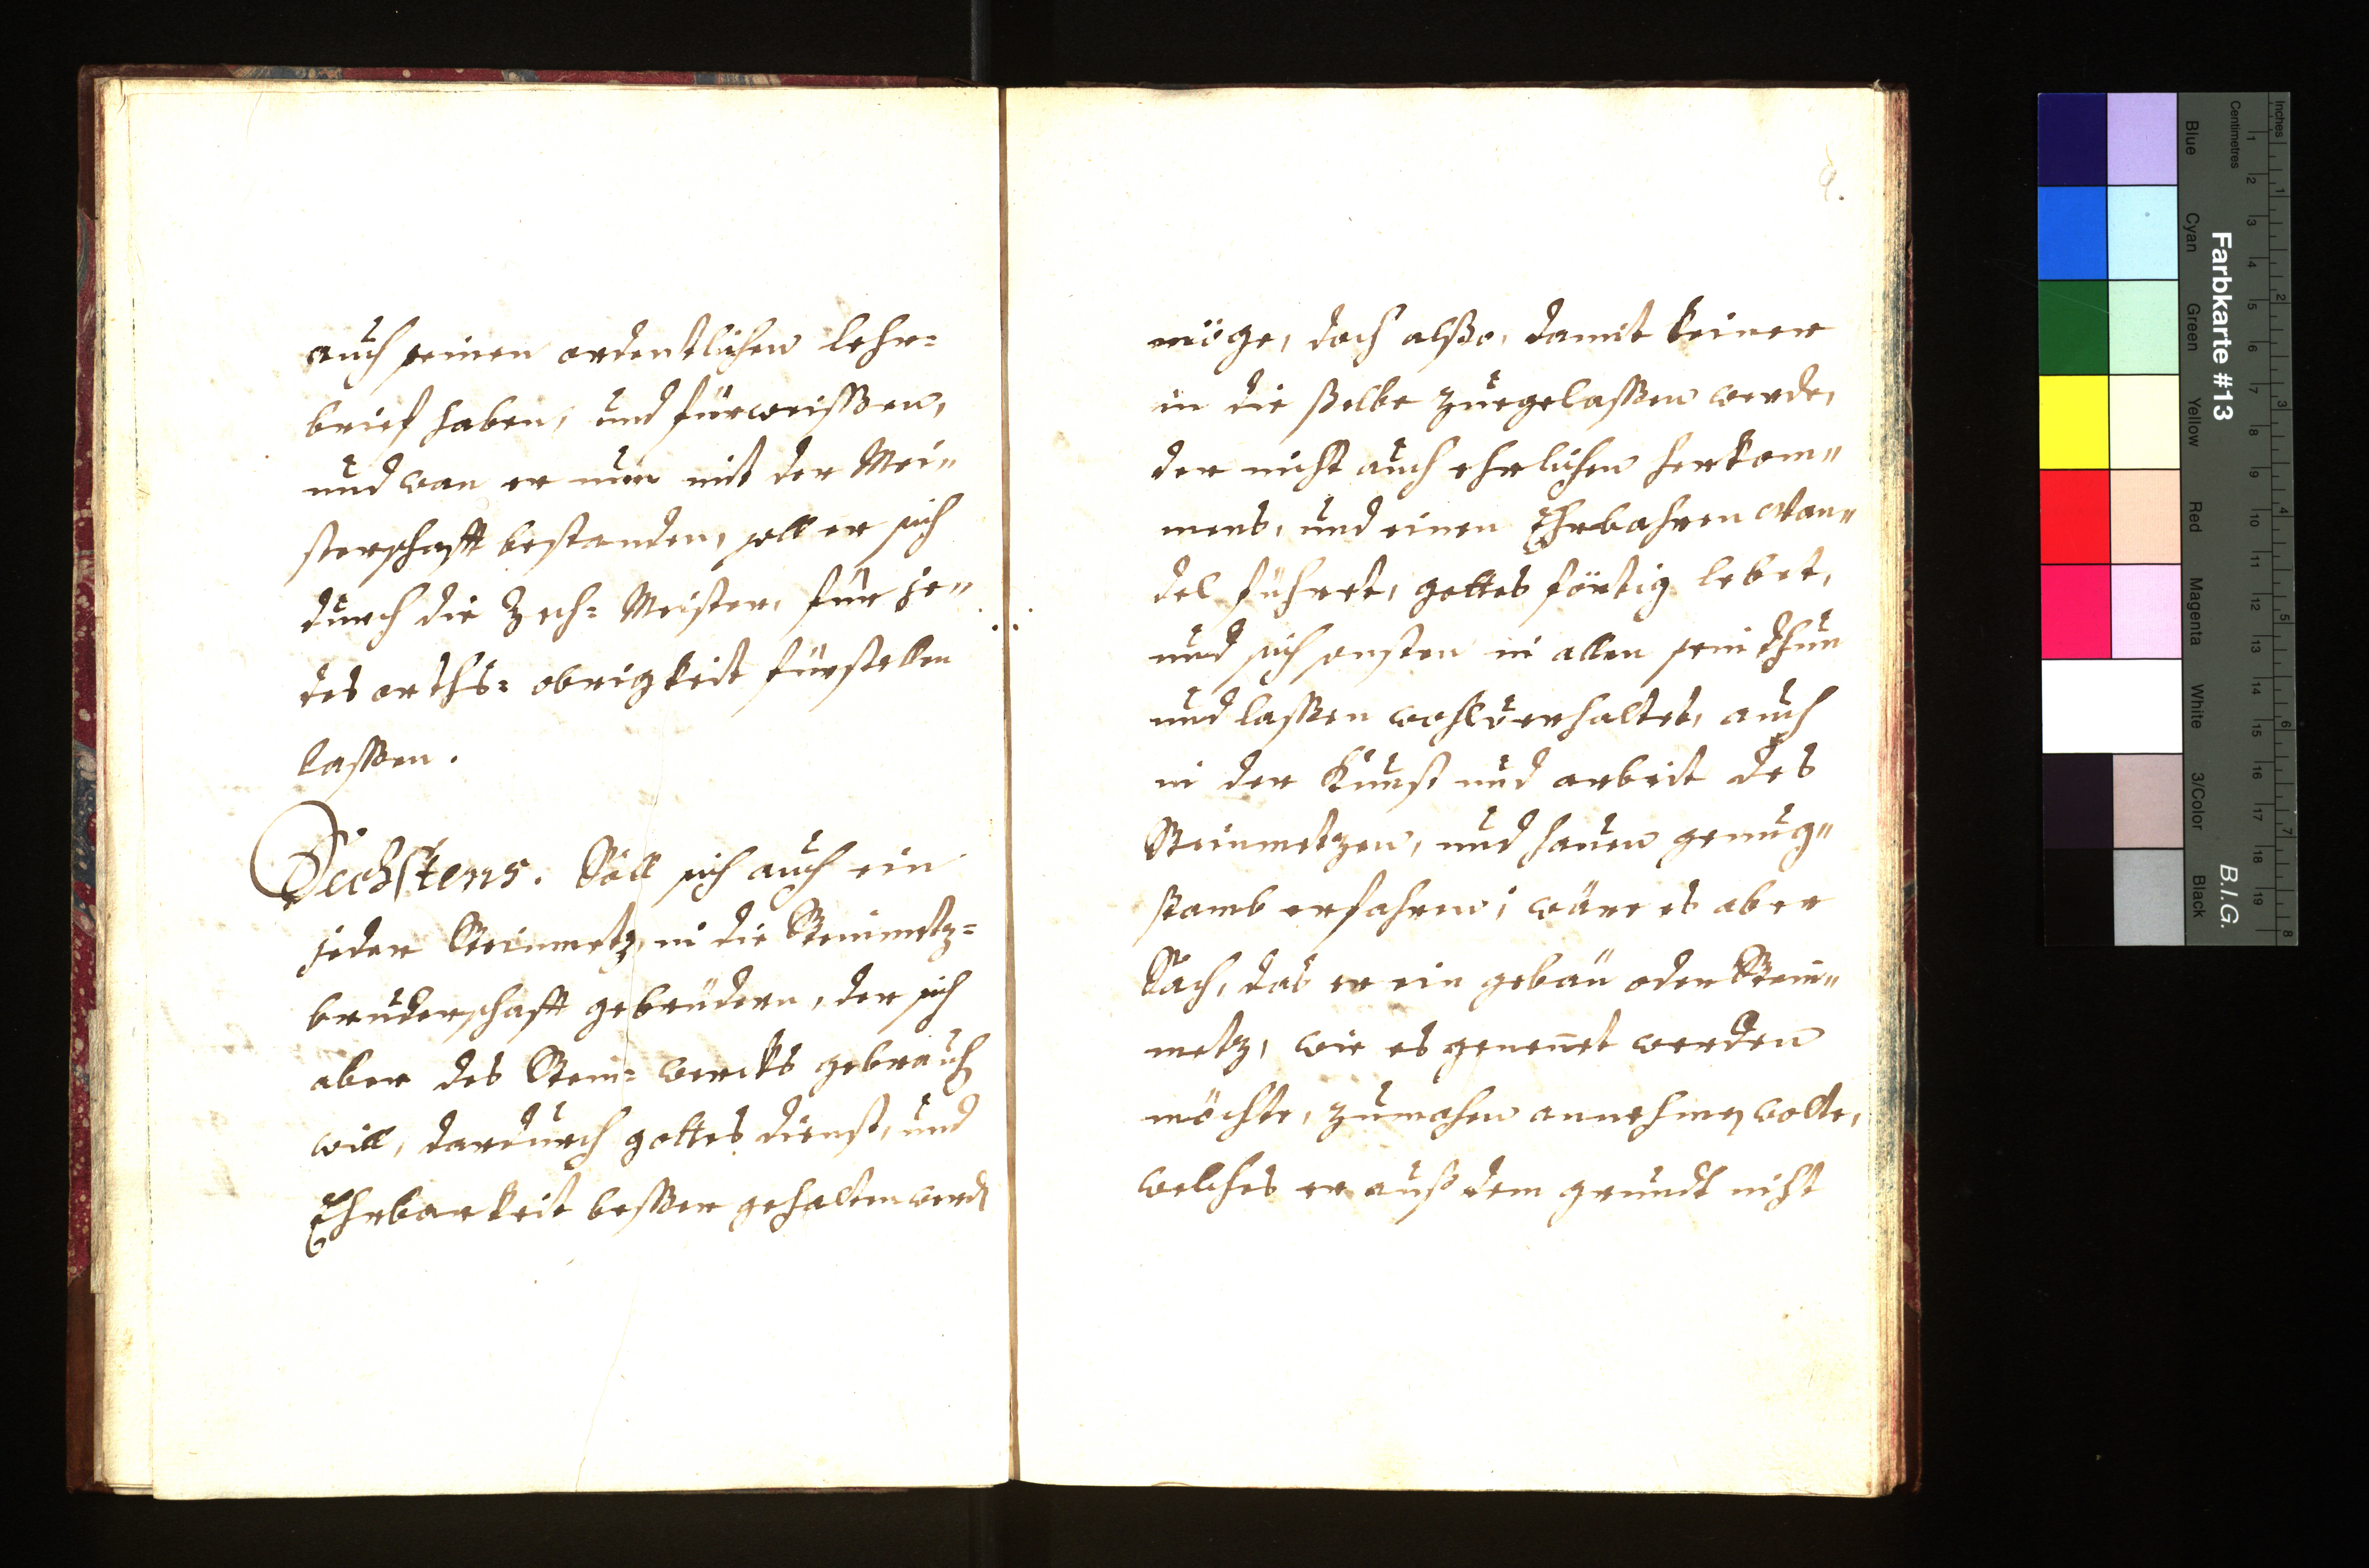 auch seinen ordentlichen lehr=
brief haben, und fürweissen,
und wan er nun mit der Mei„
sterschafft bestanden, soll er sich
durch die Zech= Meister, für je„
des orths= obrigkeit fürstellen
lassen.
Sechstens. Soll sich auch ein
jeder Steinmetz, in die Steinmetz=
bruderschafft gebrüdern, der sich
aber des Stein= wercks gebrauch
will, dardurch gottes dienst, und
Ehrbarkeit besser gehalten werd
möge, doch alsso, damit keiner
in die sselbe zuegelassen werde,
der nicht auch ehrlichen herkom„
mens, und einen Ehrbahren wan„
del führet, gottes förtig lebet,
und sich sonsten in allen sein thun
und lassen wohl verhaltet, auch
in der Kunst und arbeit des
Steinmetzen, und hauen genug„
samb erfahren; wäre es aber
Sach, das er ein gebäu oder Stein„
metz, wie es genennet werden
möchte, zumachen annehmen wolte,
welches er auß dem grundt nicht
Farbkarte #13
B.I.G.
Inches
Centimetres
Blue
Cyan
Green
Yellow
Red
Magenta
White
3/Color
Black
1 2 3 4 5 6 7 8 9 10 11 12 13 14 15 16 17 18 19
1 2 3 4 5 6 7 8